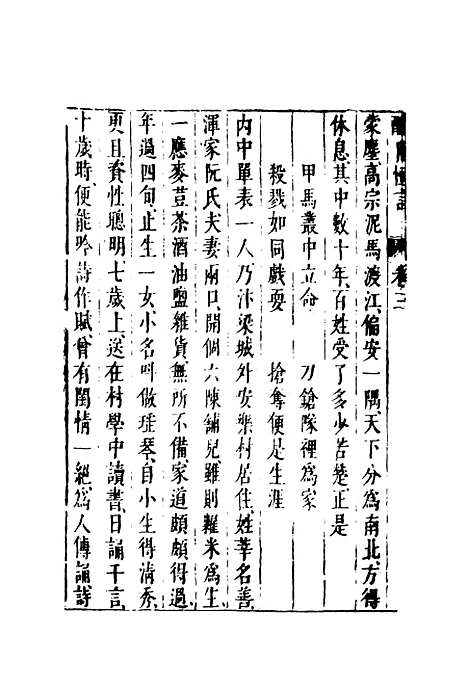 醒世恆言 卷三
蒙塵高宗泥馬渡江偏安一隅天下分爲南北方得
休息其中數十年百姓受了多少苦楚正是
甲馬叢中立命 刀鎗隊裡爲家
殺戮如同戲耍 搶奪便是生涯
內中單表一人乃汴梁城外安樂村居住姓莘名善
渾家阮氏夫妻兩口開個六陳鋪兒雖則糶米爲生
一應麥荳茶酒油鹽雜貨無所不備家道頗頗得過
年過四旬止生一女小名叫做瑤琴自小生得清秀
更且資性聰明七歲上送在村學中讀書日誦千言
十歲時便能吟詩作賦曾有閨情一絕爲人傳誦詩